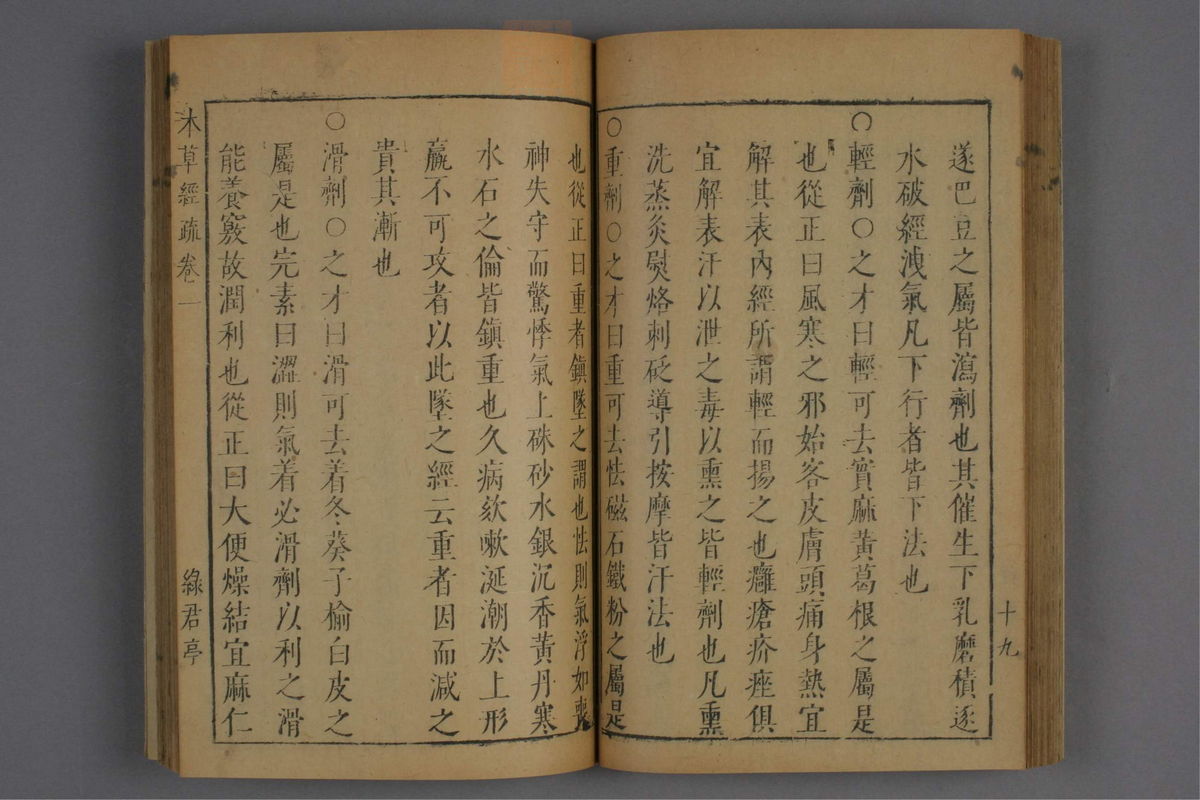 十九
遂巴豆之屬皆瀉劑也其催生下乳磨積逐
水破經洩氣凡下行者皆下法也
○輕劑○之才曰輕可去實麻黃葛根之屬是
也從正曰風寒之邪始客皮膚頭痛身熱宜
解其表內經所謂輕而揚之也癰瘡疥痤俱
宜解表汗以泄之毒以熏之皆輕劑也凡熏
洗蒸灸熨烙刺砭導引按摩皆汗法也
○重劑○之才曰重可去怯磁石鐵粉之屬是
也從正曰重者鎮墜之謂也怯則氣浮如喪
神失守而驚悸氣上硃砂水銀沉香黃丹寒
水石之倫皆鎮重也久病欬嗽涎潮於上形
羸不可攻者以此墜之經云重者因而減之
貴其漸也
○滑劑○之才曰滑可去着冬葵子榆白皮之
屬是也完素曰澀則氣着必滑劑以利之滑
能養竅故潤利也從正曰大便燥結宜麻仁
本草經疏 卷一
綠君亭